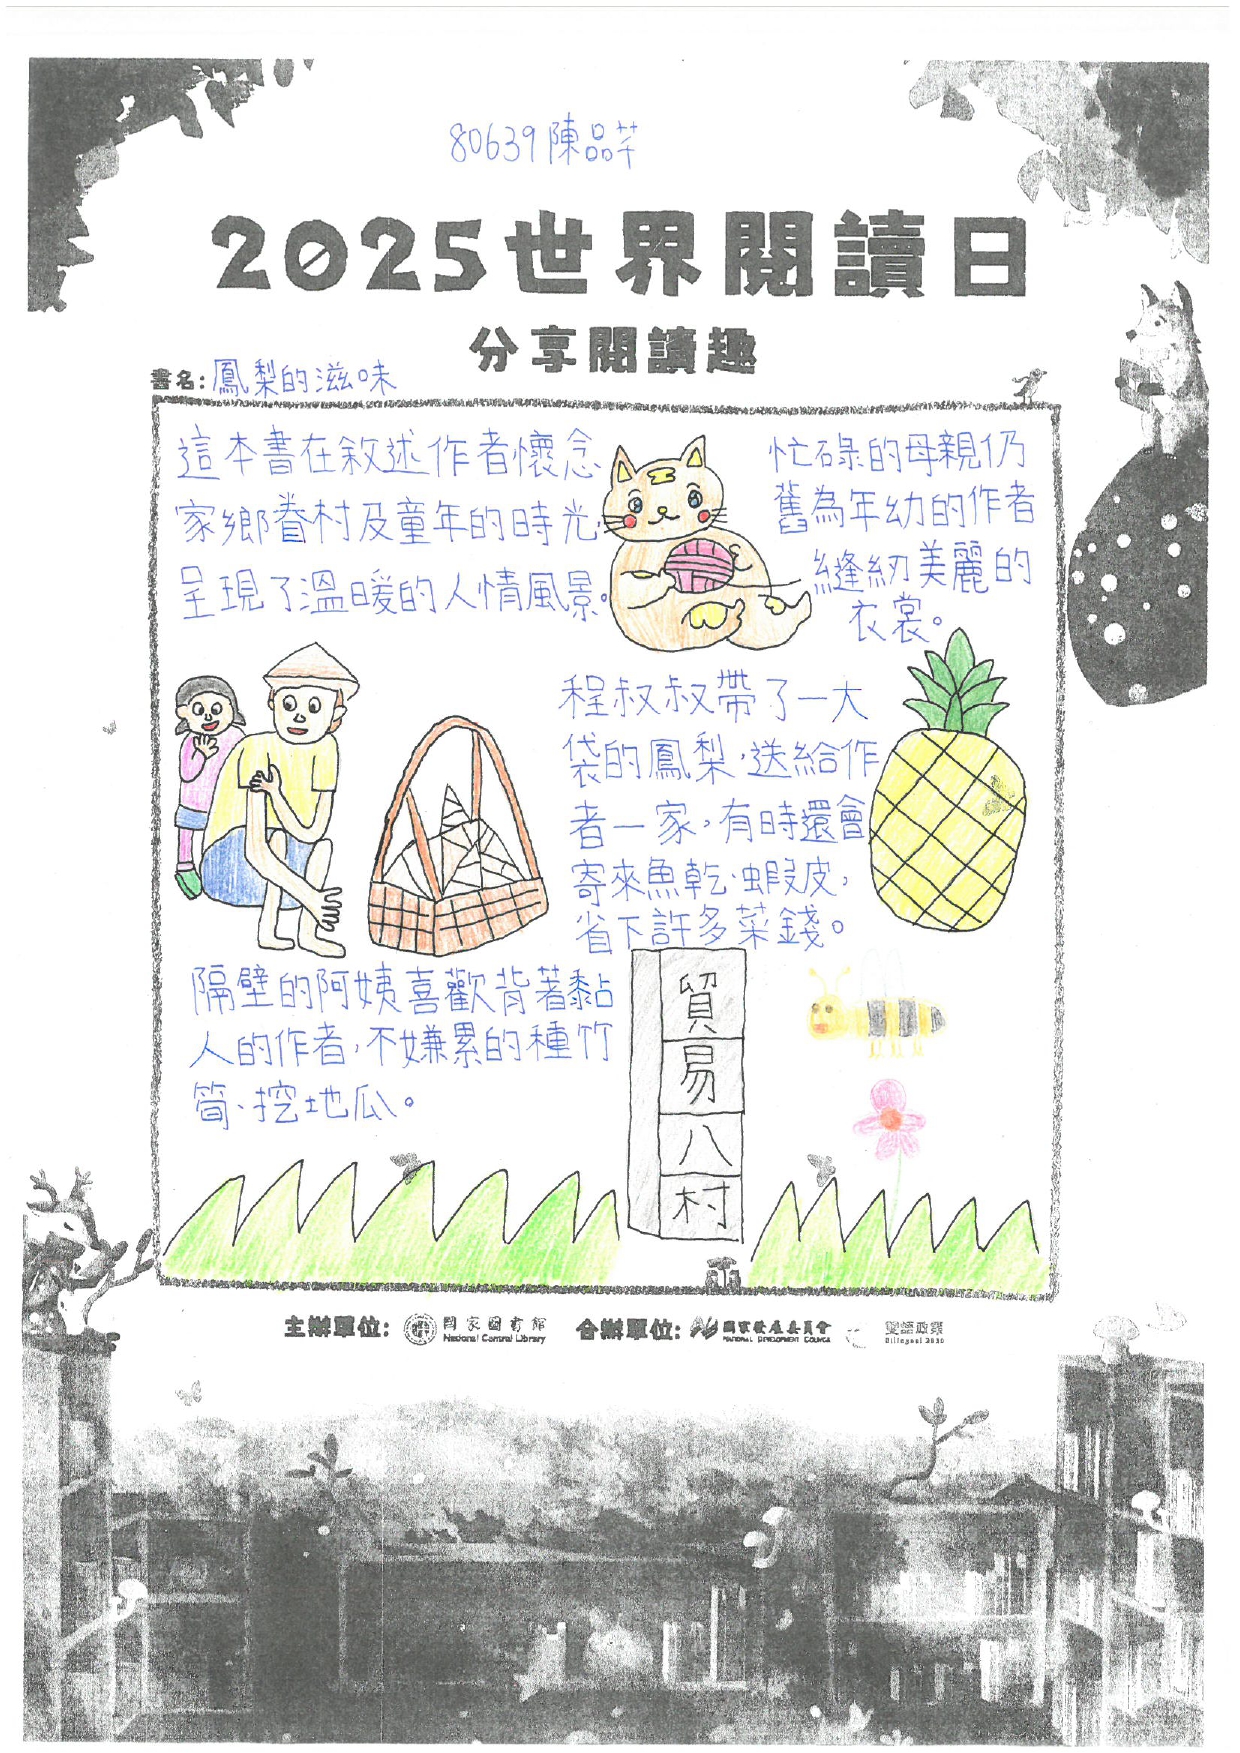 80639陳品芊
2025世界閱讀日
分享閱讀趣
書名:鳳梨的滋味
這本書在敘述作者懷念
家鄉眷村及童年的時光,
呈現了溫暖的人情風景。
忙碌的母親仍
舊為年幼的作者
縫紉美麗的
衣裳。
程叔叔帶了一大
袋的鳳梨,送給作
者一家,有時還會
寄來魚乾、蝦皮,
省下許多菜錢。
隔壁的阿姨喜歡背著黏
人的作者,不嫌累的種竹
筍、挖地瓜。
貿
易
八
村
主辦單位: 國家圖書館
National Central Library
合辦單位: 國家發展委員會
NATIONAL DEVELOPMENT COUNCIL
雙語政策
Bilingual 2030